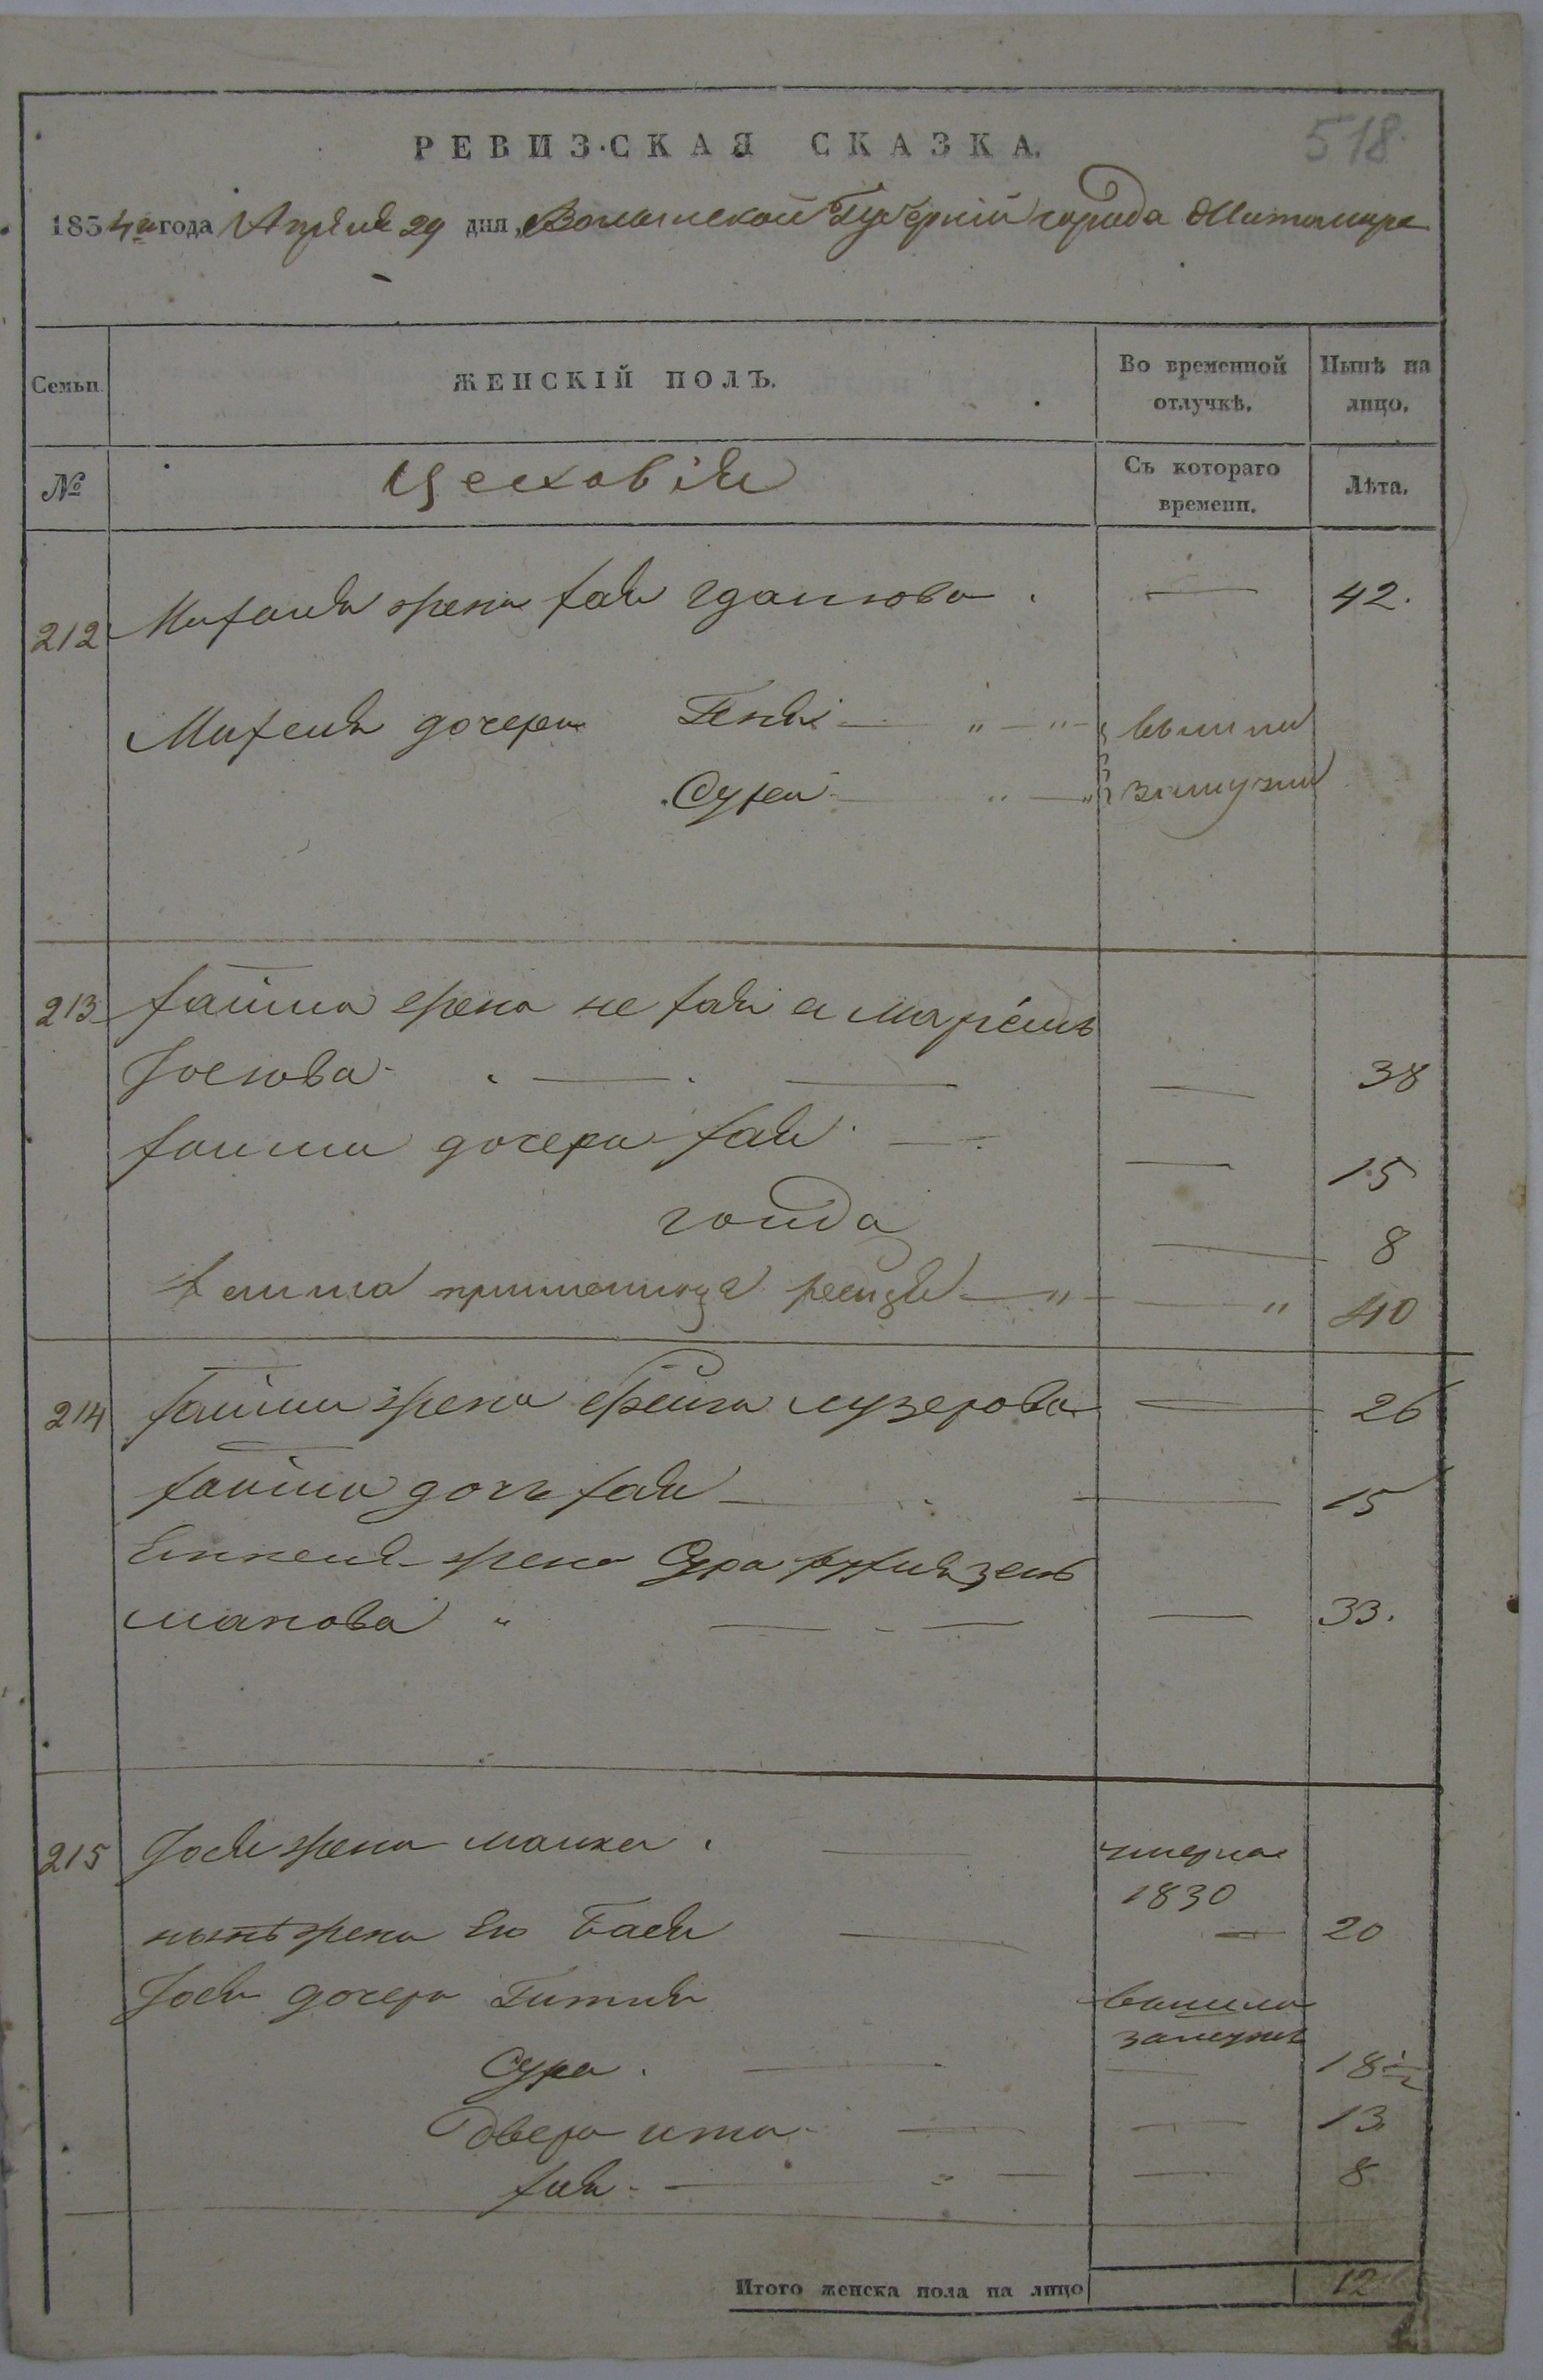 518.
РЕВИЗСКАЯ СКАЗКА.
1854го года Апреля 29 дня, Волынской Губерніи города Житомира
Семьи.
ЖЕНСКІЙ ПОЛЪ.
Во временной отлучкѣ.
Нынѣ на лицо.
№
Цеховіи
Съ котораго времени.
Лѣта.
212 жена Хая — 42.
дочери Геня вышли
Сухеи замужи
213 Хаима жена не Хая а Маріемъ
Іосіова — 38
Хаима дочера Хая — 15
Голда — 8
Хаима — 40
214 Хаима жена Фейга лузерова — 26
Хаима дочь Хая — 15
жена Сура
манова — 33.
215 Іося жена малка умерла
1830
нынѣ жена Его Бася — 20
Іося дочера Гитля вышла
замужъ
Сура. — 18½
Двера ита — 13.
Хая — 8
Итого женска пола на лицо 12